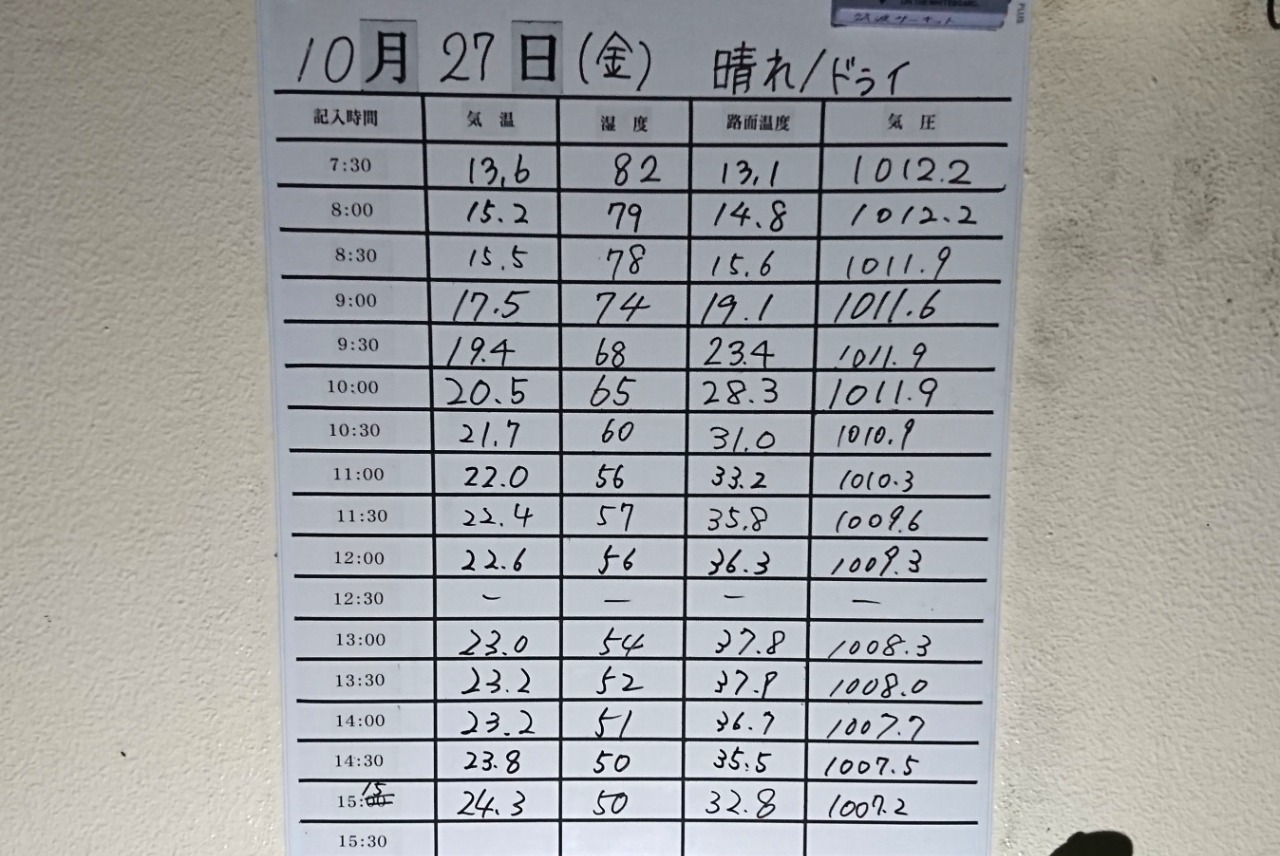 筑波サーキット
PLUS
10月27日(金) 晴れ/ドライ
記入時間 気温 湿度 路面温度 気圧
7:30 13,6 82 13,1 1012.2
8:00 15.2 79 14.8 1012.2
8:30 15.5 78 15.6 1011.9
9:00 17.5 74 19.1 1011.6
9:30 19.4 68 23.4 1011.9
10:00 20.5 65 28.3 1011.9
10:30 21.7 60 31.0 1010.9
11:00 22.0 56 33.2 1010.3
11:30 22.4 57 35.8 1009.6
12:00 22.6 56 36.3 1009.3
12:30 — — — —
13:00 23.0 54 37.8 1008.3
13:30 23.2 52 37.9 1008.0
14:00 23.2 51 36.7 1007.7
14:30 23.8 50 35.5 1007.5
15:15 24.3 50 32.8 1007.2
15:30